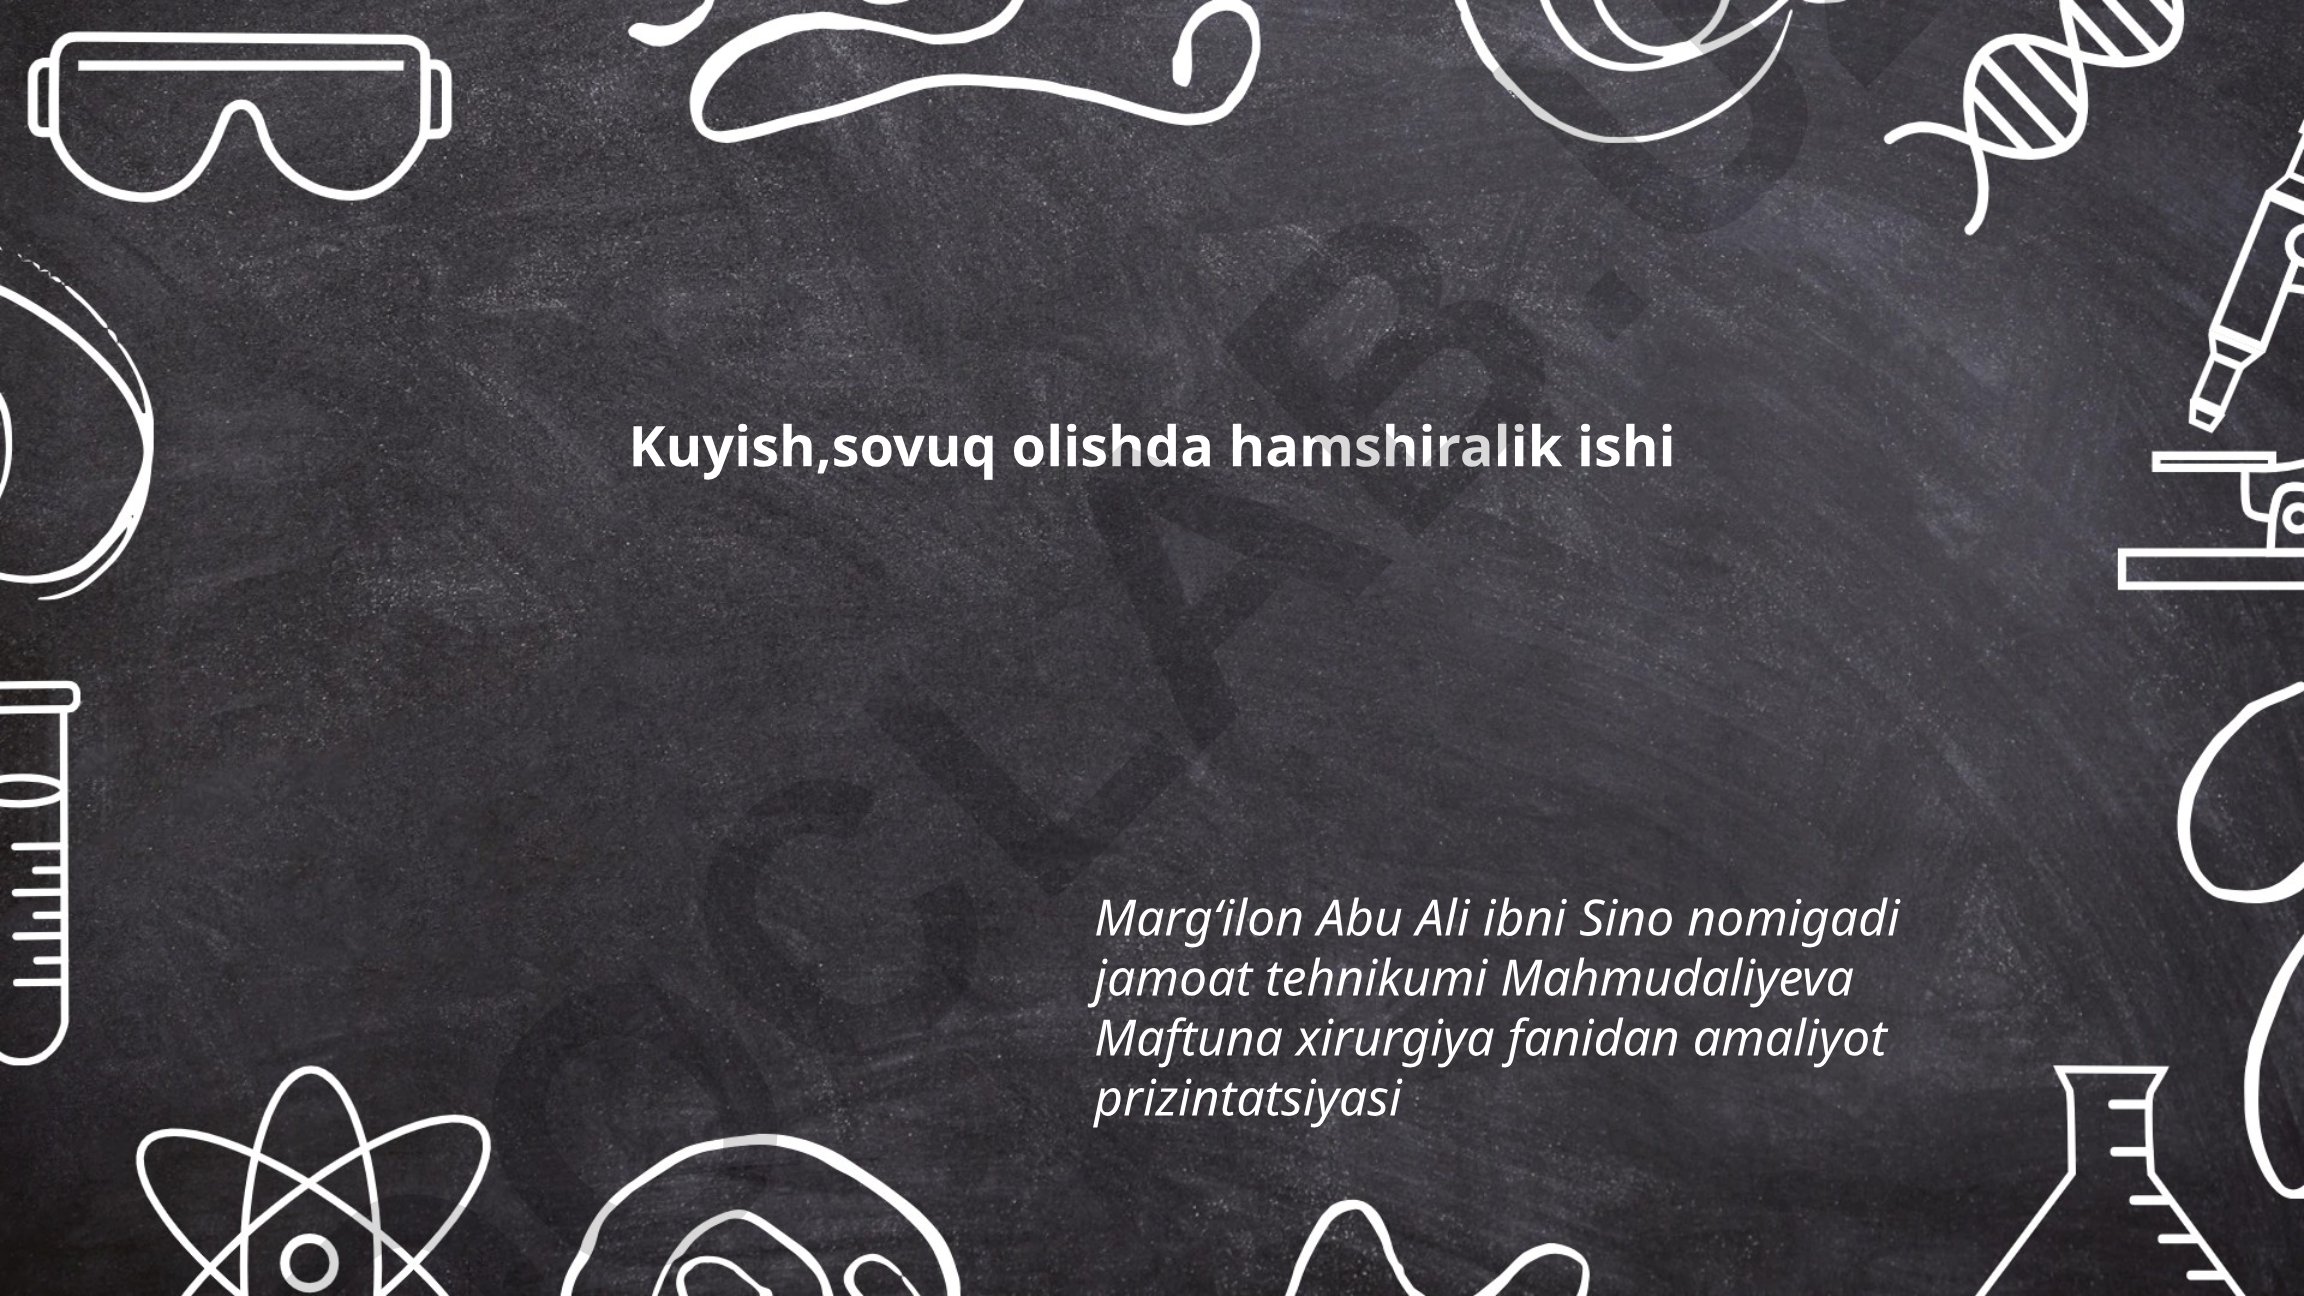 Kuyish,sovuq olishda hamshiralik ishi
Marg‘ilon Abu Ali ibni Sino nomigadi
jamoat tehnikumi Mahmudaliyeva
Maftuna xirurgiya fanidan amaliyot
prizintatsiyasi